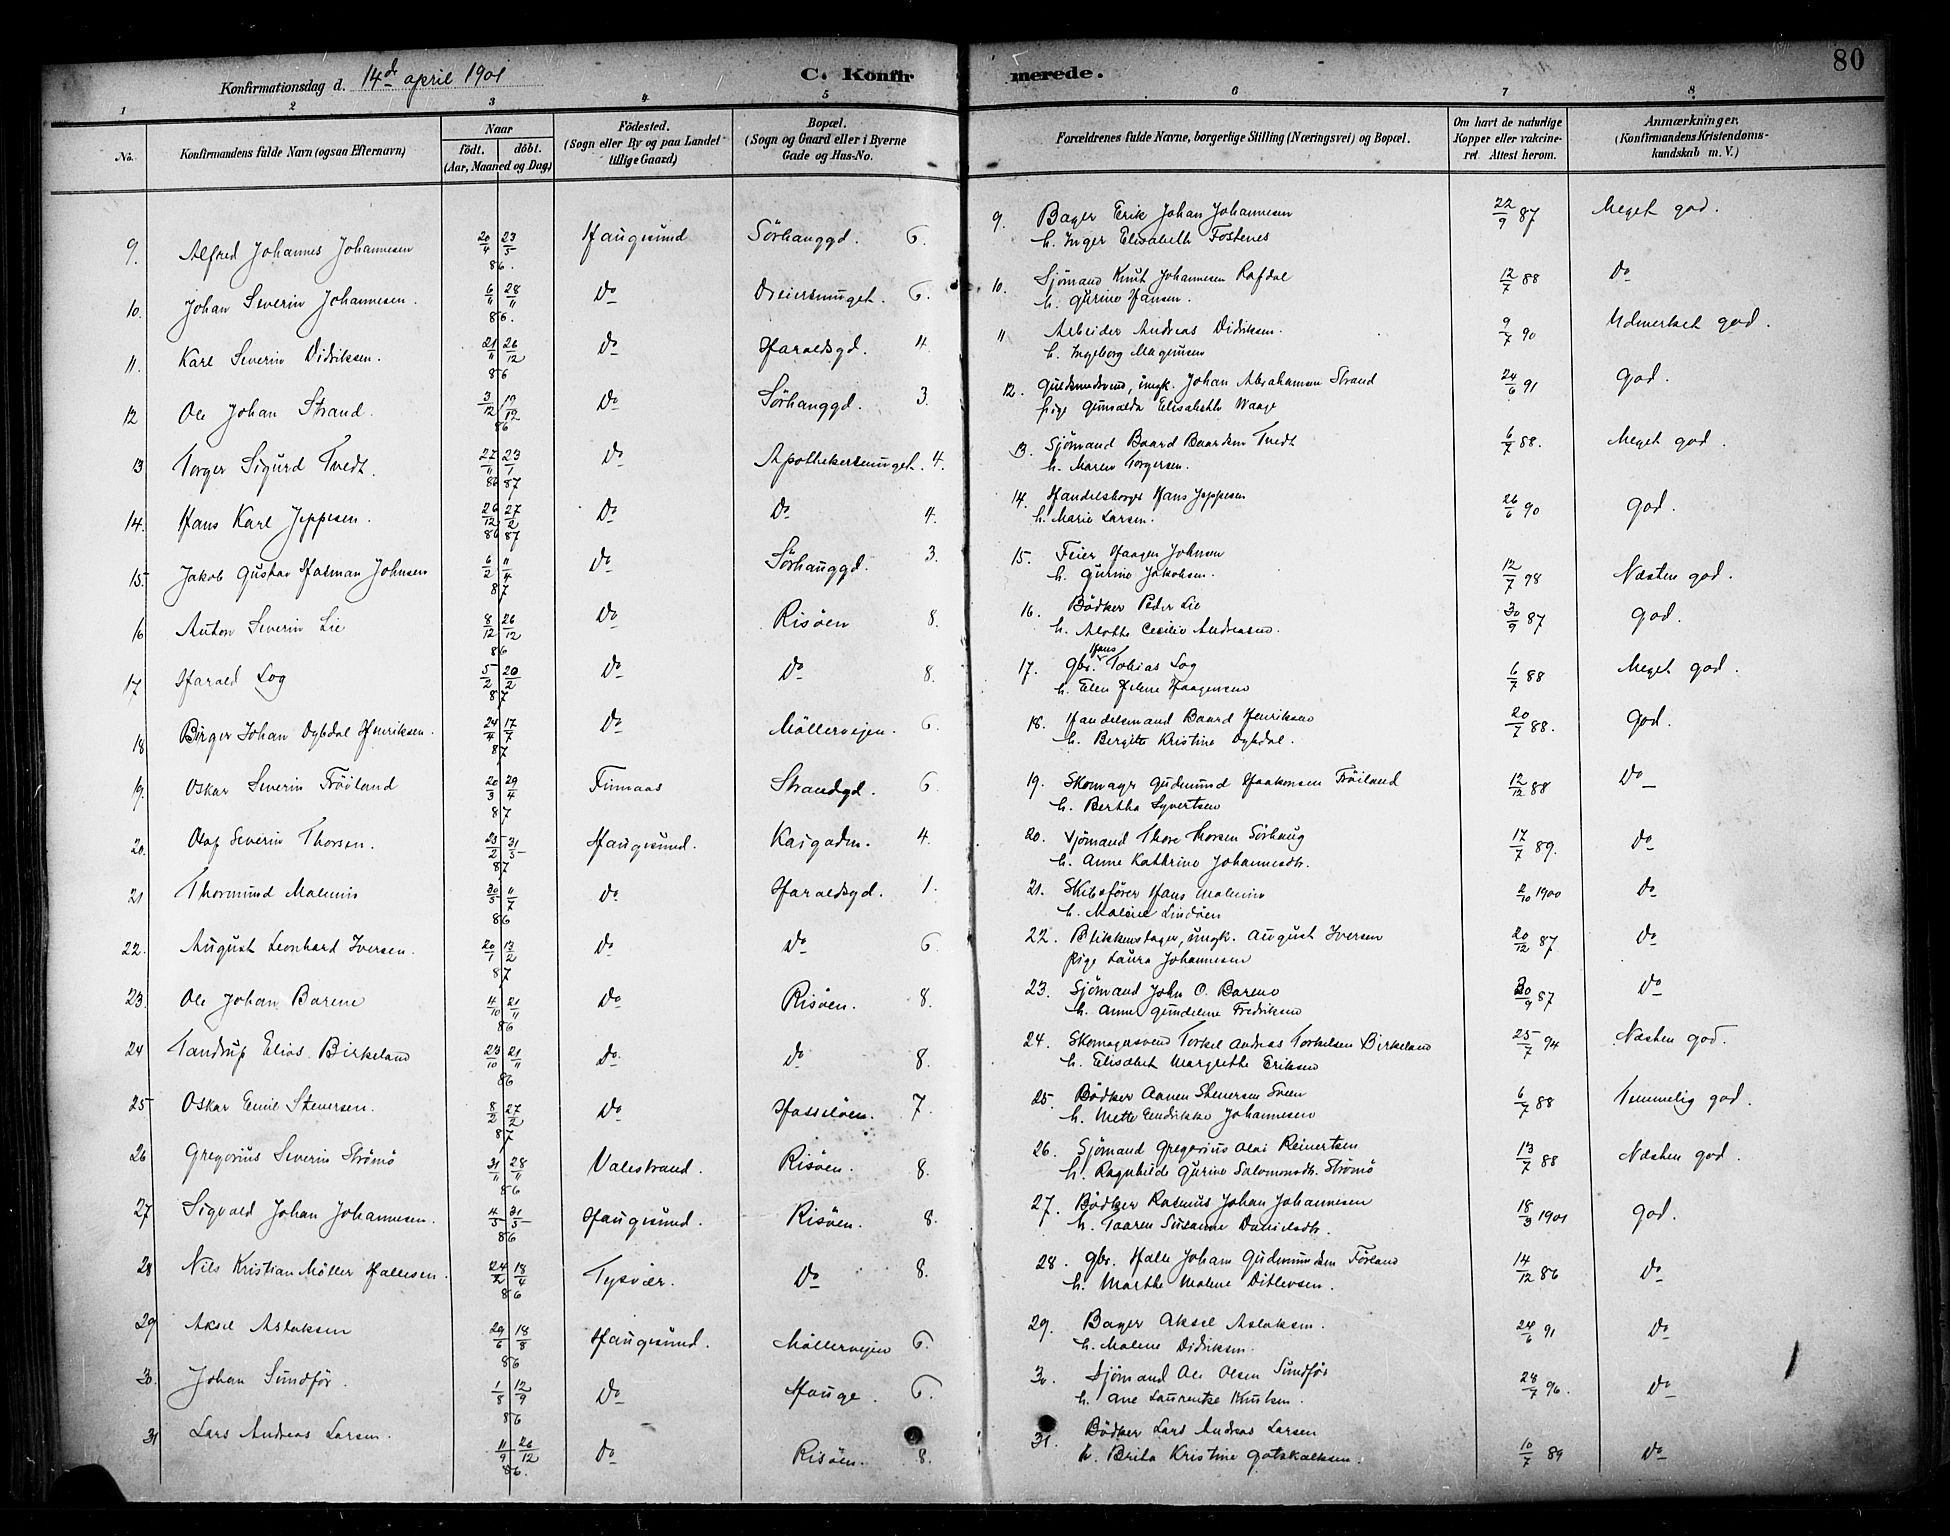 80
Konfirmationsdag d. 14d april 1901
C. Konfirmerede.
1 2 3 4 5 6 7 8
No. Konfirmandens fulde Navn (ogsaa Efternavn) Naar födt. döbt. (Aar, Maaned og Dag) Födested. (Sogn eller By og paa Landet tillige Gaard) Bopæl. (Sogn og Gaard eller i Byerne Gade og Hus-No. Forældrenes fulde Navne, borgerlige Stilling (Næringsvei) og Bopæl. Om havt de naturlige Kopper eller vakcineret. Attest herom. Anmærkninger. (Konfirmandens Kristendomskundskab m. V.)
9. Alfred Johannes Johannesen 20/4 23/5 86. Haugesund Sörhauggd. 6. 9. Bager Erik Johan Johannesen 22/9 87 Meget god.
h. Inger Elisabeth Fostenes
10. Johan Severin Johannesen. 6/11 28/11 86. Do Dreiersmuget. 6. 10. Sjömand Knut Johannesen Rafdal 12/7 88 Do
h. Gurine Hansen.
11. Karl Severin Didriksen. 21/11 26/12 86 Do Haraldsgd. 4. 11 Arbeider Andreas Didiksen. 9/7 90 Udmerket god.
h. Ingeborg Magnusen
12 Ole Johan Strand. 3/12 19/12 86 Do Sörhauggd. 3. 12. Guldsmedsvend, ungk. Johan Abrahamsen Strand 24/6 91 god.
pige Gunvalda Elisabeth Waage
13 Torger Sigurd Tvedt. 27/11 86 23/1 87 Do Apothekersmuget. 4. 13. Sjömand Baard Baardsen Tvedt 6/7 88. Meget god.
h. Maren Torgersen.
14. Hans Karl Jeppesen. 26/12 86 27/2 87 Do Do 4. 14. Handelsborger Hans Jeppesen 26/6 90 god.
h. Marie Larsen.
15. Jakob Gustav Hasman Johnsen 6/2 11/4 87 Do Sörhauggd. 3. 15. Feier Haagen Johnsen 12/7 98 Næsten god.
h. Gurine Jakobsen.
16 Anton Severin Lie 8/12 26/12 86 Do Risöen 8. 16. Bödker Peder Lie 30/9 87 god.
h. Cecilie Andreasen.
17 Harald Log 5/2 20/2 87 Do Do 8. 17. Gbr. Hans Tobias Log 6/7 88 Meget god.
h. Elen Helene Haagensen
18 Birger Johan Dybdal Henriksen. 24/4 17/7 87 Do Möllerveien. 6. 18. Handelsmand Baard Henriksen 20/7 88. god.
h. Bergitte Kristine Dybdal.
19. Oskar Severin Fröiland 20/3 29/4 87 Finnaas Strandgd. 6 19. Skomager Gudmund Haakonsen Fröiland 12/12 88 Do
h. Bertha Syvertsen
20. Olaf Severin Thorsen. 25/2 31/5 87 Haugesund. Kaigaden. 4. 20. Sjömand Thore Thorsen Sörhaug 17/7 89. Do
h. Anne Kathrine Johannesdtr.
21 Thormund Malmin 30/5 11/7 86 Do Haraldsgd. 1. 21. Skibsförer Hans Malmin 2/10 1900 Do
h. Malene Lindöen
22. August Leonhard Iversen. 20/1 13/2 87 Do Do 6. 22. Blikkenslager, ungk. August Iversen 20/12 87 Do
pige Laura Johannesen
23. Ole Johan Barene 4/10 21/11 86 Do Risöen. 8. 23. Sjömand John O. Barene 30/9 87 Do
h. Anne Gundeline Fredriksen
24 Tandrup Elias Birkeland 23/10 21/11 86 Do. Do 8. 24. Skomagersvend Torkel Andreas Torkelsen Birkeland 25/7 94 Næsten god.
h. Elisabet Margrethe Eriksen
25 Oskar Emil Stenersen. 8/2 27/2 87 Do Hasselöen. 7. 25. Bödker Aanen Stenersen Sveen 6/7 88 Temmelig god.
h. Mette Endrikke Johannesen
26 Gregorius Severin Strömö 31/11 28/11 86 Valestrand. Risöen. 8. 26. Sjömand Gregorius Olai Reinertsen 13/7 88 Næsten god.
h. Ragnhilde Gurine Salomonsdtr. Strömö
27 Sigvald Johan Johannesen. 4/5 31/5 86 Haugesund. Risöen. 8. 27. Bödker Rasmus Johan Johannesen 18/3 1901 god.
h. Taaren Susanne Danielsdtr.
28 Nils Kristian Möller Hallesen. 24/2 18/4 86 Tysvær. Do 8. 28. Gbr. Halle Johan Gudmundsen Förland 14/12 86 Do
h. Marthe Malene Ditlevsen.
29 Aksel Aslaksen 29/6 18/8 86 Haugesund. Möllerveien 6. 29. Bager Aksel Aslaksen. 24/6 91 Do
h. Malene Didriksen.
30. Johan Sundför. 1/8 12/9 86 Do Hauge. 6. 30. Sjömand Ole Olsen Sundför 28/7 96. Do
h. Ane Laurentze Knutsen.
31 Lars Andreas Larsen. 11/9 26/12 86. Do Risöen. 8. 31. Bödker Lars Andreas Larsen 10/7 89 Do
h. Brita Kristine Gotskalksen.